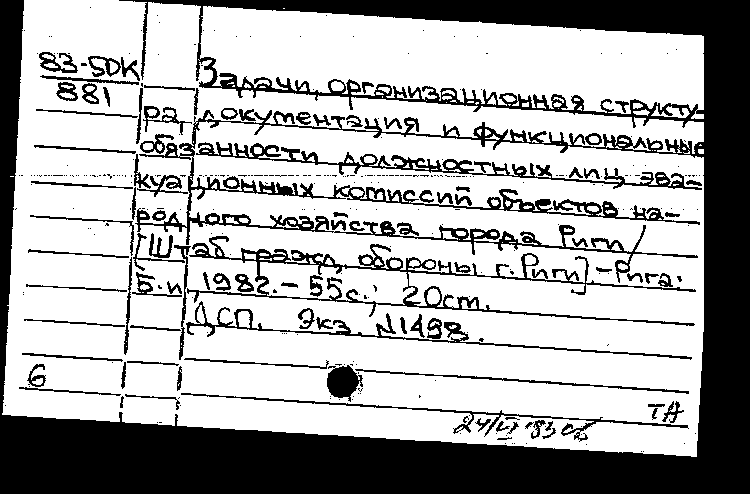 83-5DK
881
Задачи, организационная структу-
ра, документация и функциональные
обязанности должностных лиц эва-
куационных комиссий объектов на-
родного хозяйства города Риги /
[Штаб гражд. обороны г. Риги]. - Рига:
Б.и., 1982. - 55с.; 20cm.
ДСП. Экз. N1498.
6
TA
24/VI 83